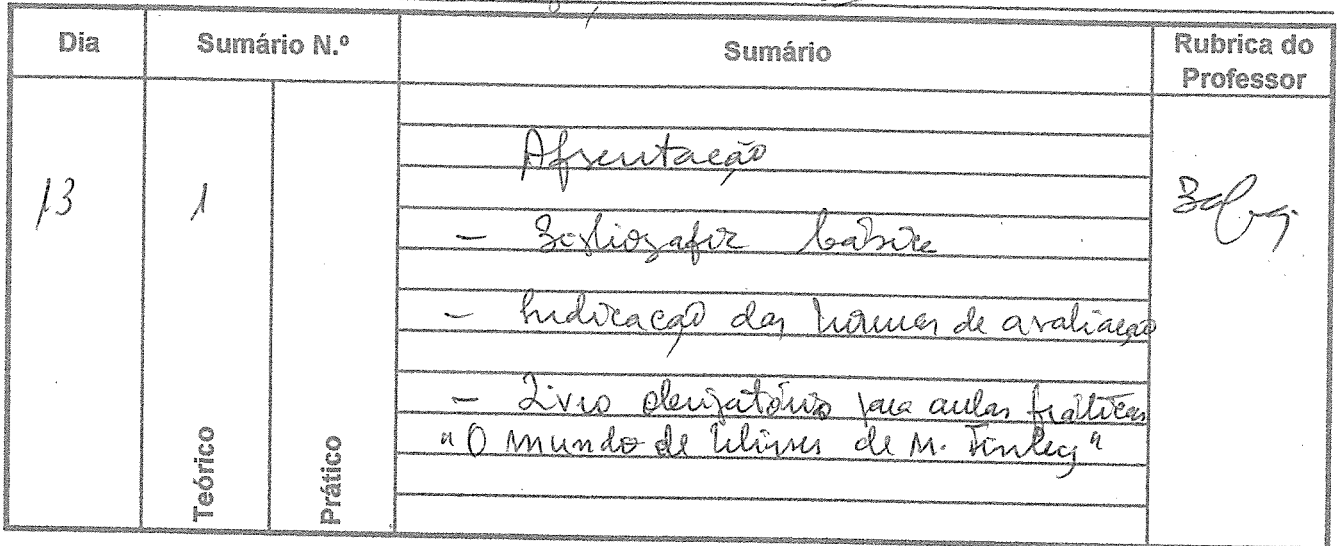 Dia Sumário N.º Sumário Rubrica do
Professor
Apresentação
13 1
- Bibliografia básica
- Indicação das normas de avaliação
- Livro obrigatório para aulas práticas
"O mundo de Ulisses de M. Finley"
Teórico Prático